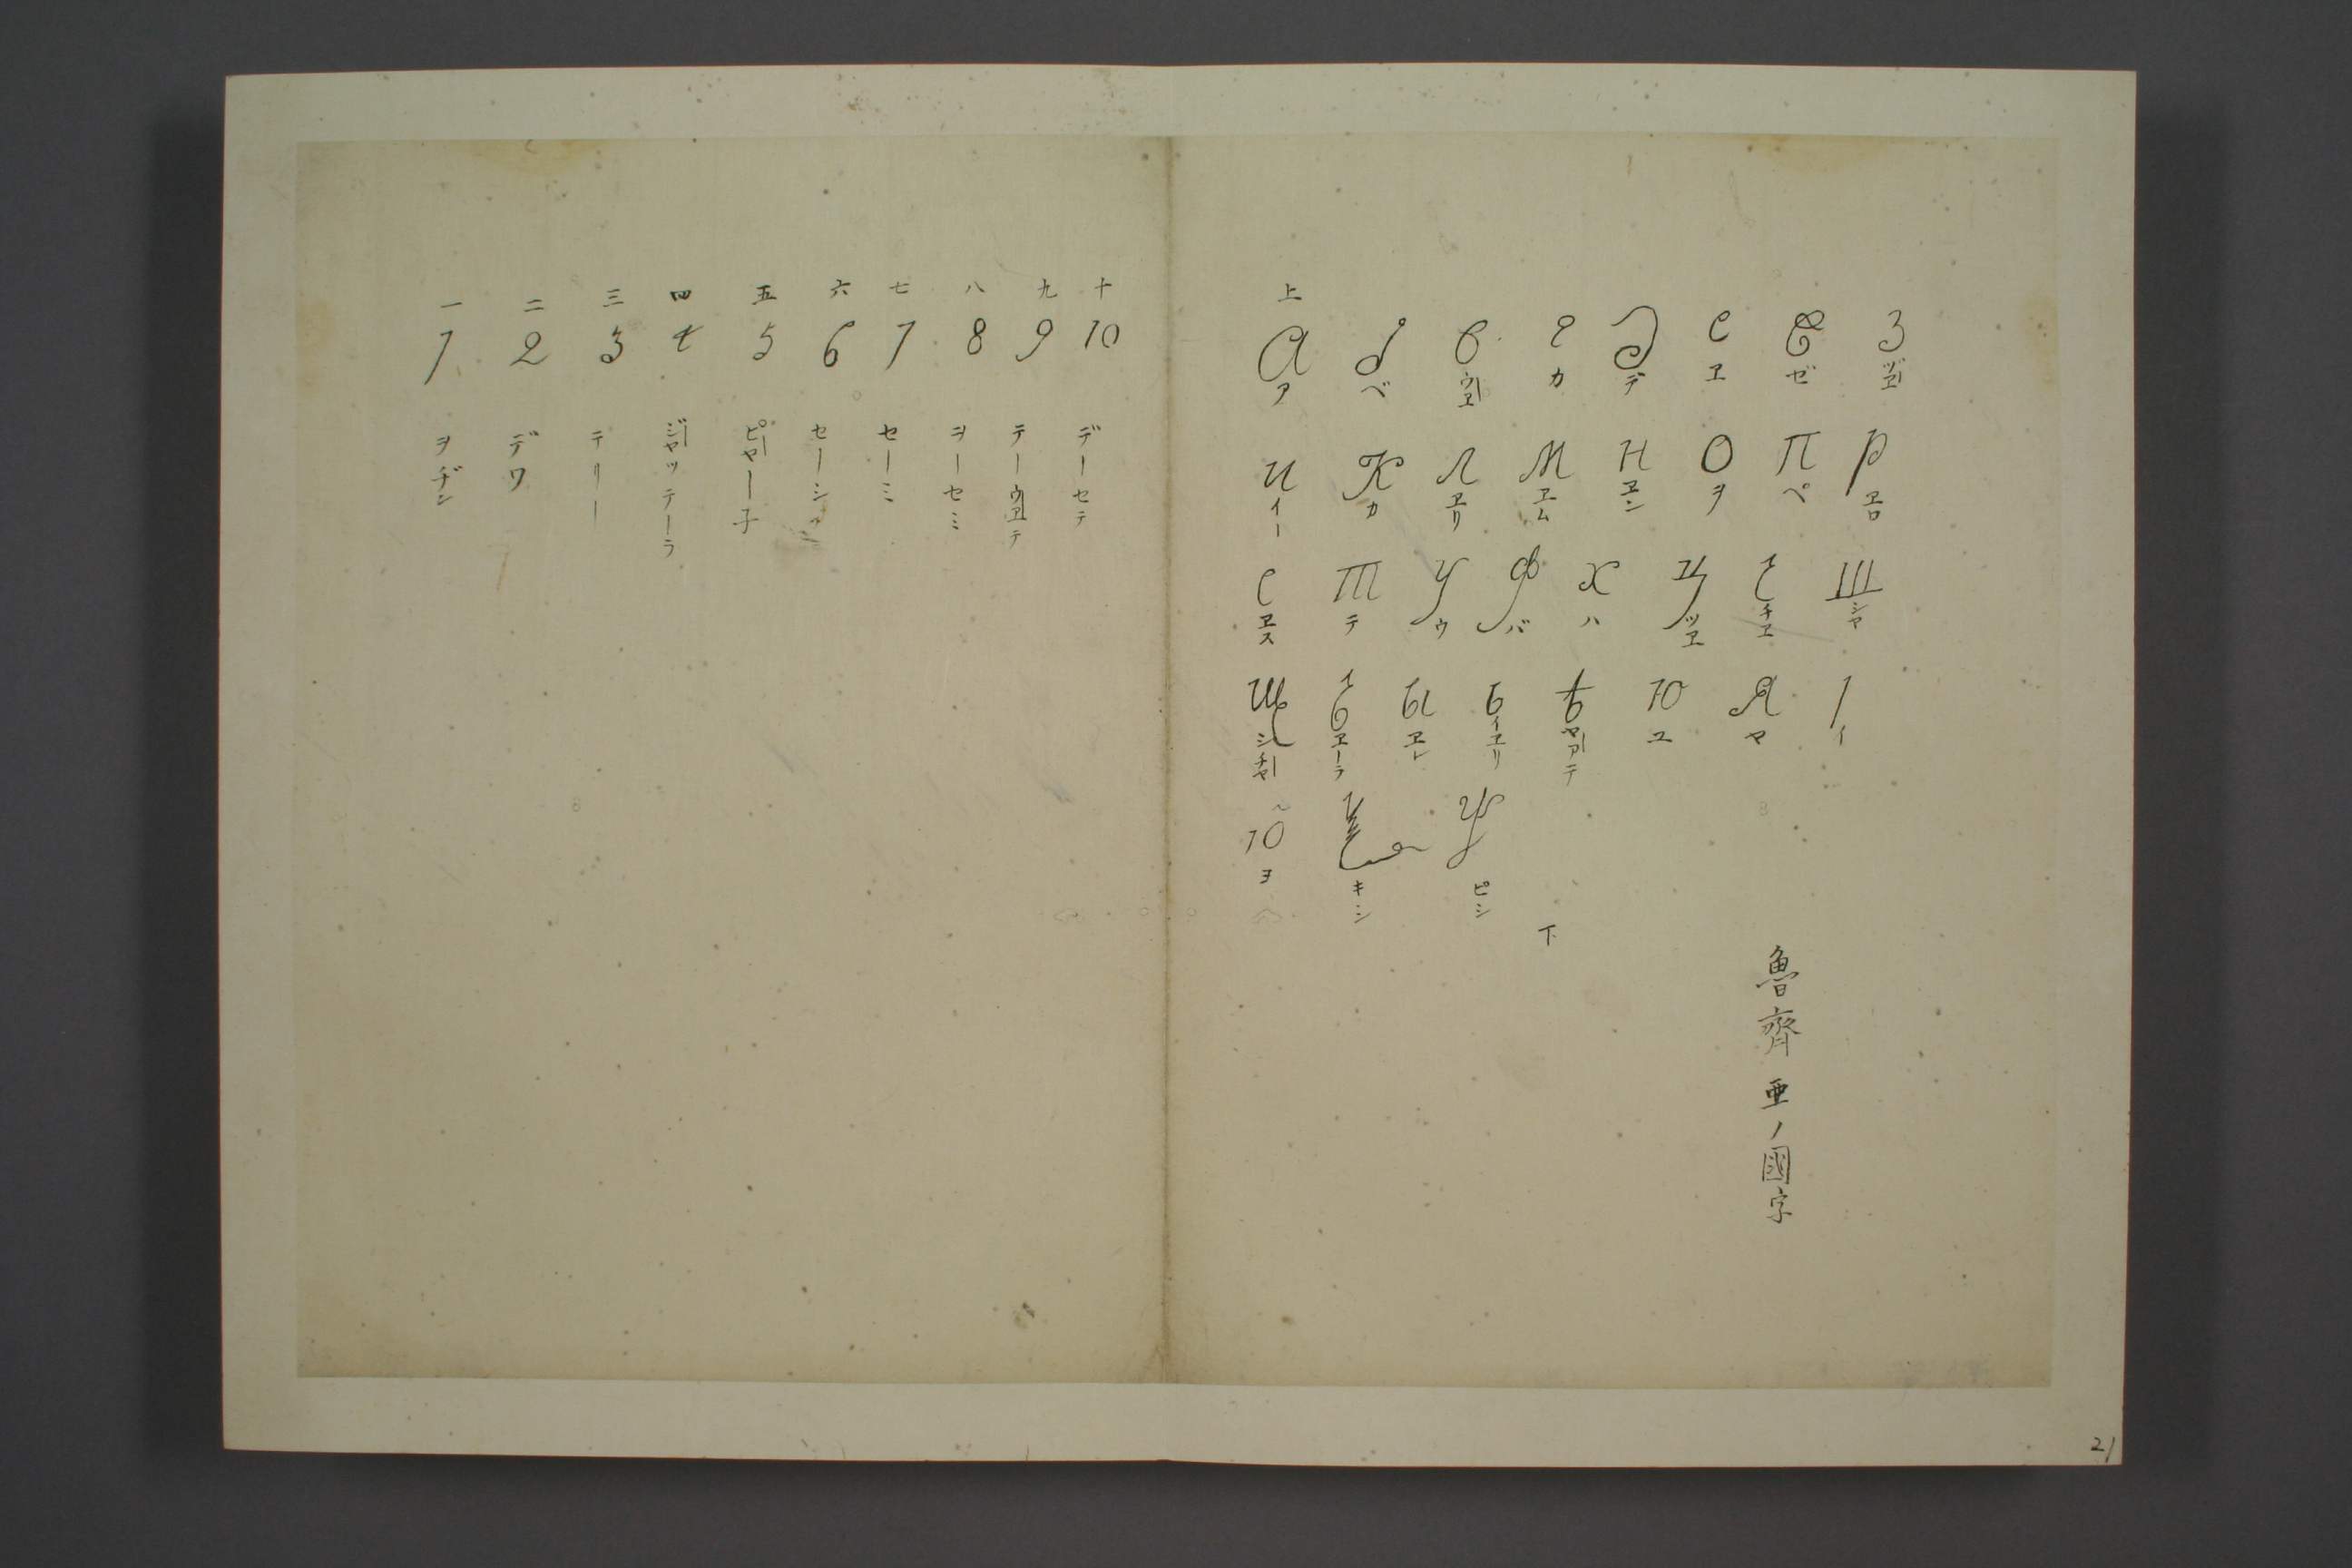 上
а б в г д е ж з
ア ベ ウヱー カ デ ヱ ゼ ヅヱー
и к л м н о п р
イー カ ヱリ ヱム ヱン ヲ ペ ヱロ
с т у ф х ц ч ш
ヱス テ ウ バ ハ ツヱ チヱ シヤ
щ ъ ы ь ѣ ю я і
シチヤー ヱーラ ヱレ イヱリ ヤアーテ ユ マ イ
ю̃ ѯ ѱ
ヨ キシ ピシ
下
魯齊亜ノ國字
一 二 三 四 五 六 七 八 九 十
1 2 3 4 5 6 7 8 9 10
ヲヂン
デワ
テリー
ジーヤッテーラ
ピーヤー子
セーシ
セーミ
ヲーセミ
テーウヱーテ
デーセテ
21